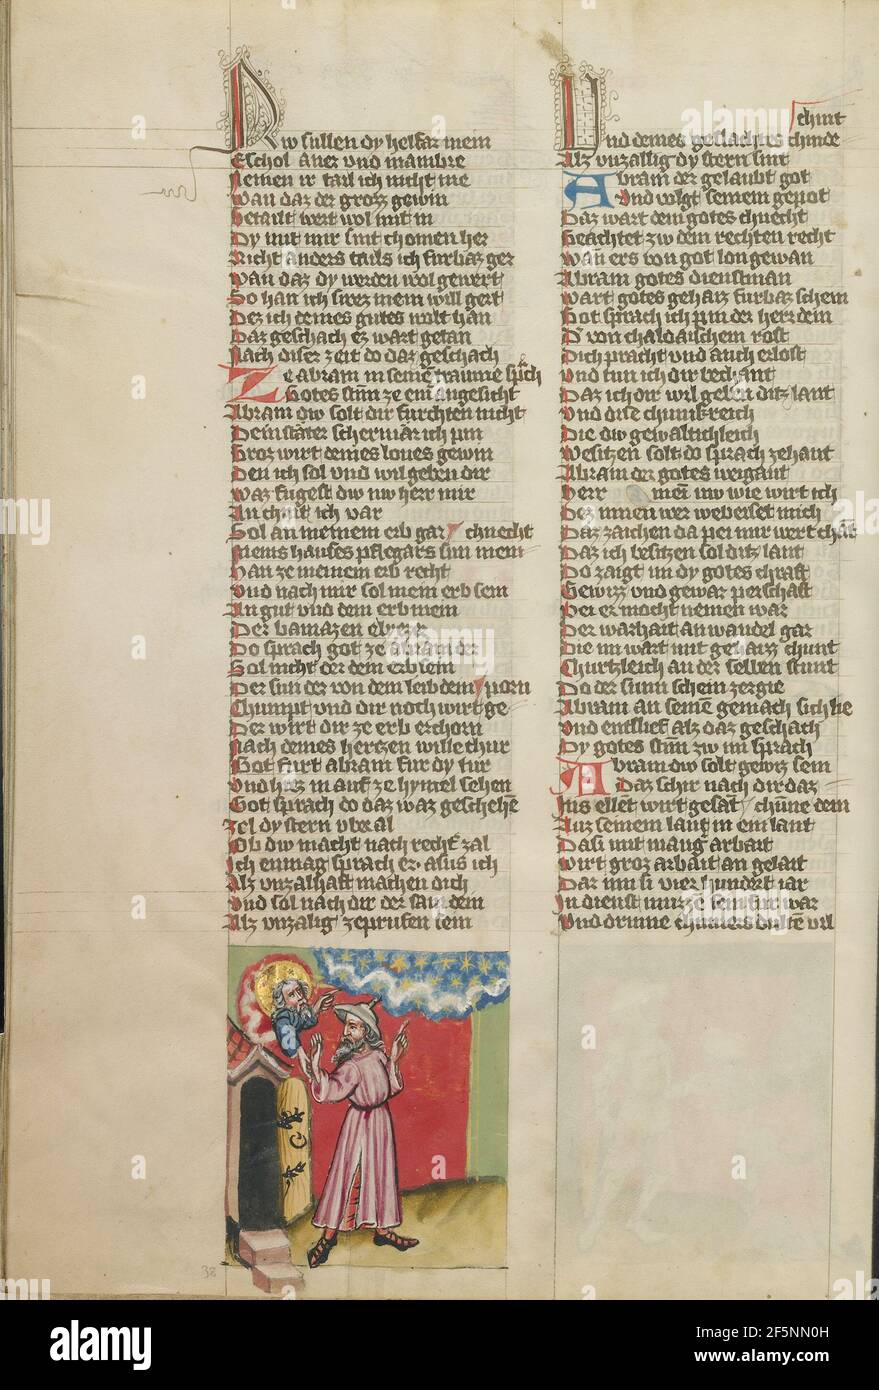 Dw sullen dy helfar mein
Eschol Aner vnd mambre
Nemen ir tail ich nicht me
Wan daz der grozz gewin
Getailt wert wol mit in
Dy mit mir sint chomen her
Nicht anders tails ich furbaz ger
Wan daz dy werden wol gewert
So han ich swez mein will gert
Dez ich deines gutes wolt han
Daz geschach ez wart getan
Nach diser zeit do daz geschach
Ze abram in seinē traume sp͛ch
Gotes stim ze eim angesicht
Abram dw solt dir furchten nicht
Dein stāter scherm̄ar ich pin
Groz wirt deines lones gewin
Den ich sol vnd wil geben dir
Waz fugest dw nw herr mir
An chint ich var
Sol an meinem erb gar chnecht
Meins hauses pflegārs sun mein
Han ze meinem erb recht
Vnd nach mir sol mein erb sein
An gut vnd dem erb mein
Der damazen elyezer
Do sprach got ze abram der
Sol nicht der dein erb sein
Der sun der von deim leib dein porn
Chumpt vnd dir noch wirt ge
Der wirt dir ze erb erchorn
Nach deines hertzen wille chur
Got furt abram fur dy tur
Vnd hiez in auf ze hymel sehen
Got sprach do daz waz geschehē
Zel dy stern vber al
Ob dw macht nach rechter zal
Ich enmag sprach er. alus ich
Alz vnzalhaft machen dich
Vnd sol nach dir der sam dein
Alz vnzalig zeprufen sein
chint
Vnd deines geslachtes chinde
Alz vnzallig dy stern sint
Abram der gelaubt got
Vnd volgt seinem gepot
Daz wart dem gotes chnecht
Geachtet zw dem rechten recht
Wan̄ ers von got lon gewan
Abram gotes dienstman
Wart gotes gehaiz furbaz schein
Got sprach ich pin der herr dein
Der von chaldaischem rost
Dich pracht vnd auch erlost
Vnd tun ich dir bechant
Daz ich dir wil geben ditz lant
Vnd dise chunikreich
Die dw gewaltichleich
Wesitzen solt do sprach zehant
Abram der gotes weigant
Herr mein nw wie wirt ich
Dez innen wer weweiset mich
Daz zaichen da pei mir wert chāt
Daz ich besitzen sol ditz lant
Do zaigt im dy gotes chraft
Gewizz vnd gewar perschaft
Pei er mocht nemen war
Der warhait an wandel gar
Die im wart mit gehaizz chunt
Churtzleich an der selben stunt
Do der sunn schein zergie
Abram an seinē gemach sich lie
Vnd entslief alz daz geschach
Dy gotes stim zw im sprach
Abram dw solt gewiz sein
Daz schir nach dir daz
Ins ellēt wirt gesāt chūne dein
Auz seinem lant in ein lant
Da si mit maniger arbait
Wirt groz arbait an gelait
Dar inn si vier hundert iar
In dienst muz ze sein fur war
Vnd drinne chumers duldē vil
38
alamy
Image ID: 2F5NN0H
www.alamy.com